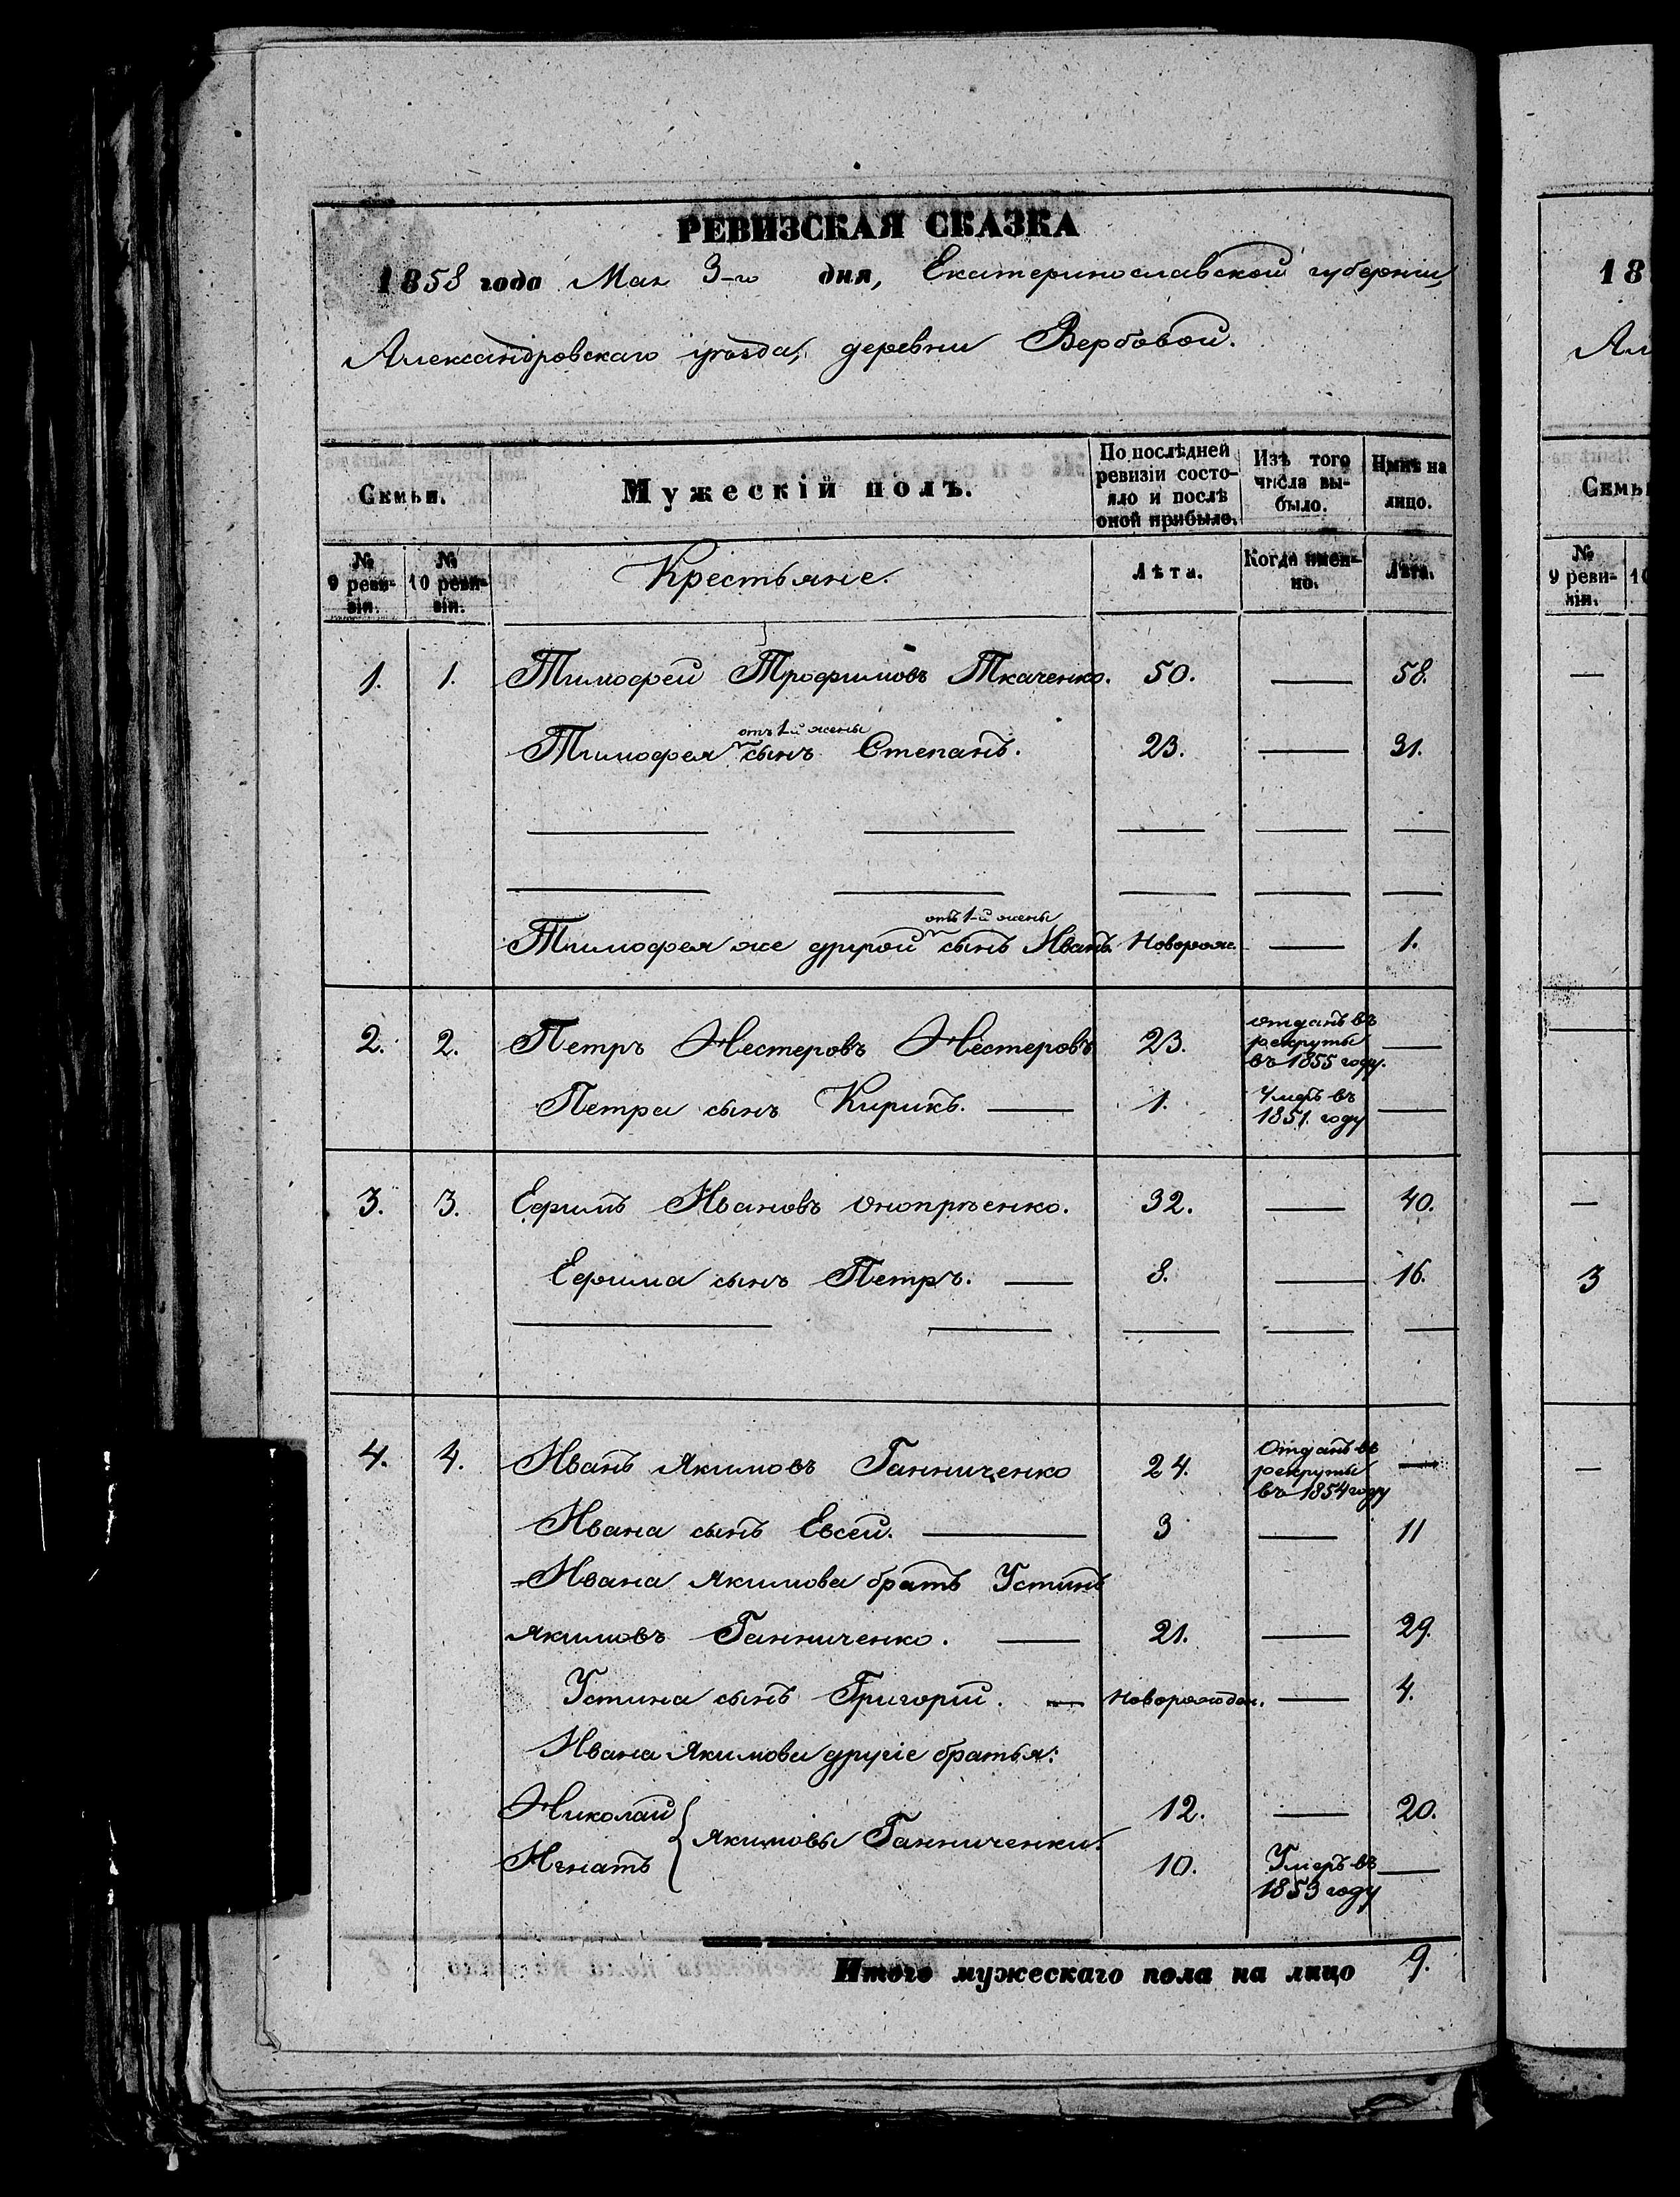 РЕВИЗСКАЯ СКАЗКА
1858 года Мая 3-го дня, Екатеринославской губернии,
Александровскаго уѣзда, деревни Вербовой.
Семьи.
Мужескій полъ.
По послѣдней
ревизіи состо-
яло и послѣ
оной прибыло.
Изъ того
числа вы-
было.
Нынѣ на
лицо.
№
9 реви-
зіи.
№
10 реви-
зіи.
Крестьяне.
Лѣта.
Когда имен-
но.
Лѣта.
1. 1. Тимофей Трофимовъ Ткаченко. 50. — 58.
отъ 1-й жены
Тимофея сынъ Степанъ. 23. — 31.
отъ 1-й жены
Тимофея же другой сынъ Иванъ. Новорож. — 1.
2. 2. Петръ Нестеровъ Нестеровъ 23. отданъ въ
рекруты
въ 1855 году. —
Петра сынъ Кирикъ. — 1. Умеръ въ
1851 году —
3. 3. Ефимъ Ивановъ Онопрѣенко. 32. — 40.
Ефима сынъ Петръ. — 8. — 16.
4. 4. Иванъ Якимовъ Ганниченко 24. Отданъ въ
рекруты
въ 1854 году —
Ивана сынъ Евсей. — 3 — 11
Ивана Якимова братъ Устинъ
Якимовъ Ганниченко. — 21. — 29.
Устина сынъ Григорій. — Новорожден. — 4.
Ивана Якимова другіе братья:
Николай 12. — 20.
Якимовы Ганниченки.
Игнатъ 10. Умеръ въ
1853 году —
Итого мужескаго пола на лицо 9.
18
Ал
Семьи
№
9 реви-
зіи.
10
—
—
3
—